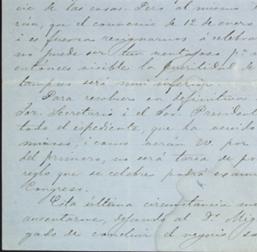 cio de las casas. Pero al mismo
ria, que el convenio de 12 de enero
i es forzoso resignarnos á celebra
no puede ser tan ventajoso pa
entonces visible la puerilidad de
tampoco será mui inferior.
Para resolver en definitiva
Sor. Secretario i el Sor. President
tado el espediente, que ha venido
misión, i como serán 20. por
del primero, no será tarea de po
reglo que se celebre podrá exami
Congreso.
Esta última circunstancia me
ausentarme, dejando al Dr. Mig
gado de concluir el negocio so